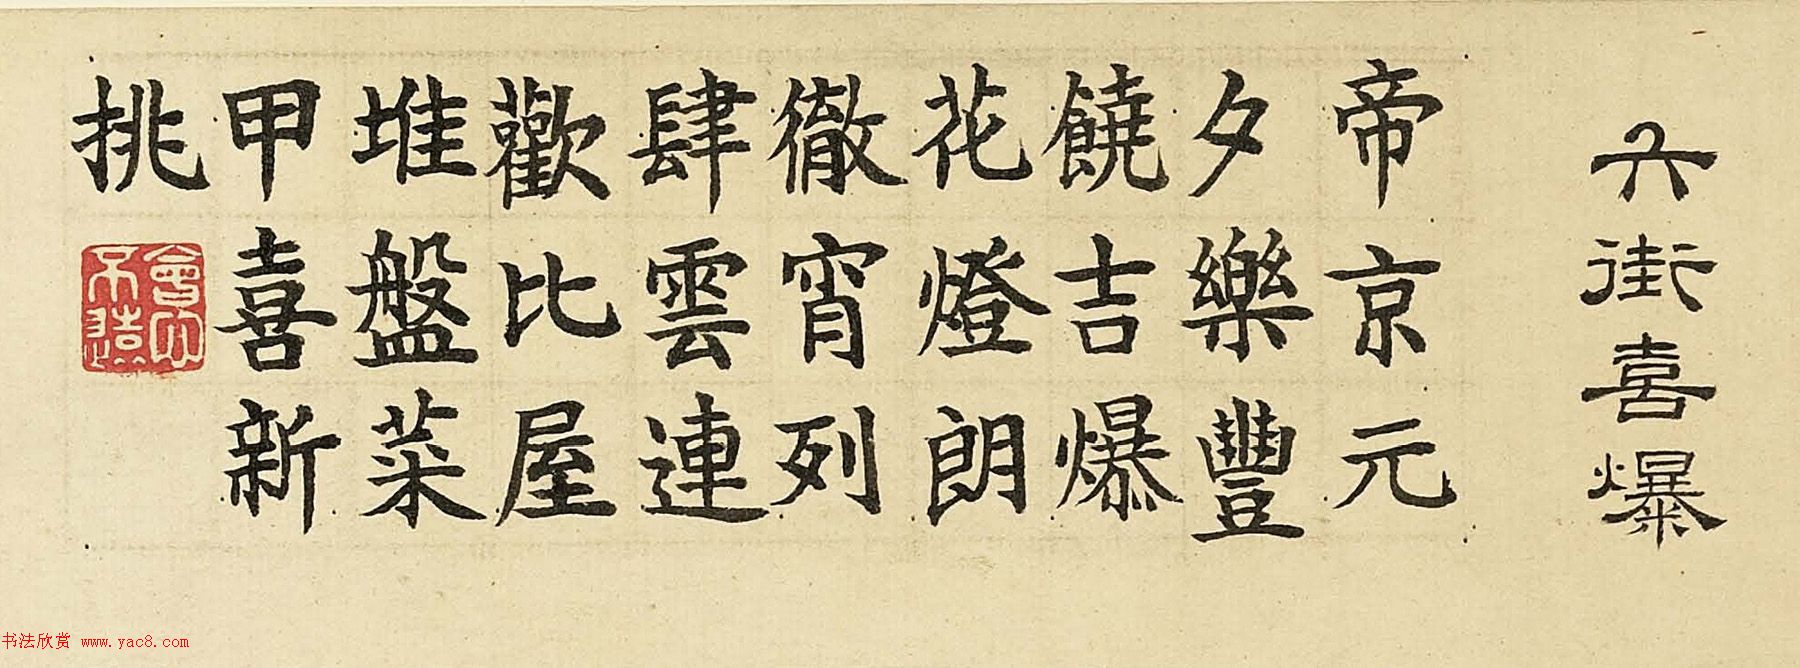 六街喜爆
帝京元
夕樂豐
饒吉爆
花燈朗
徹宵列
肆雲連
歡比屋
堆盤菜
甲喜新
挑
會心不遠
书法欣赏 www.yac8.com